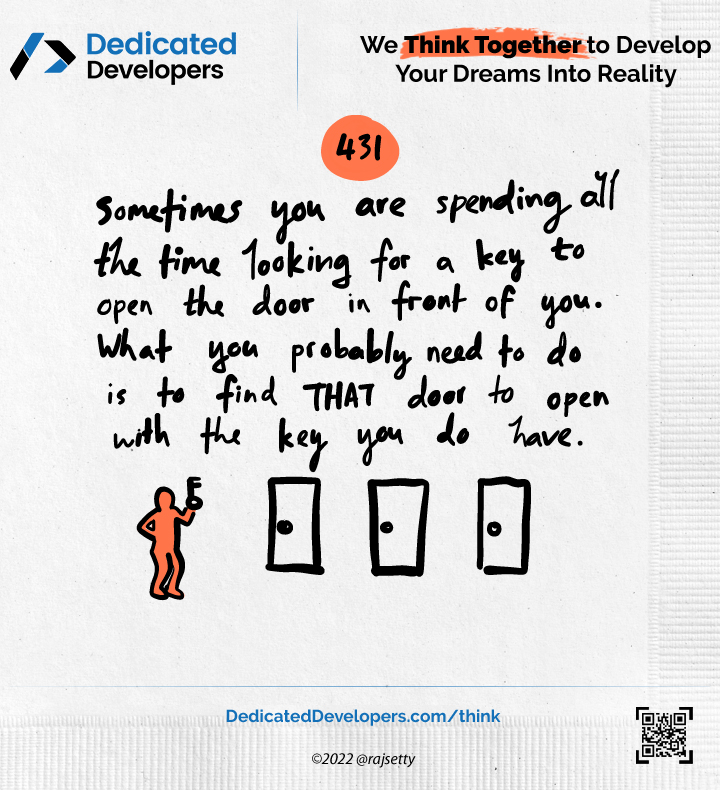 Dedicated
Developers
We Think Together to Develop
Your Dreams Into Reality
431
Sometimes you are spending all
the time looking for a key to
open the door in front of you.
What you probably need to do
is to find THAT door to open
with the key you do have.
DedicatedDevelopers.com/think
©2022 @rajsetty